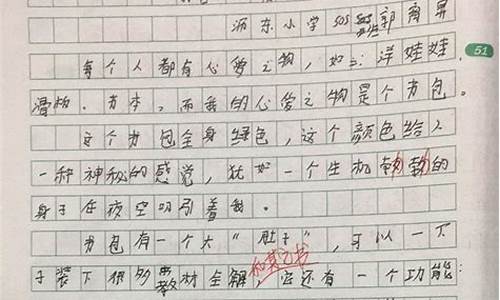 东小学505班郭
51
每个人都有心爱之物，如：洋娃娃、
滑板、书本，而我的心爱之物是个书包。
这个书包全身绿色，这个颜色给人
一种神秘的感觉，犹如一个生机勃勃的
身子在夜空吸引着我。
书包有一个大“肚子”，可以一下
子装下很多教材全解和其它书它还有一个功能